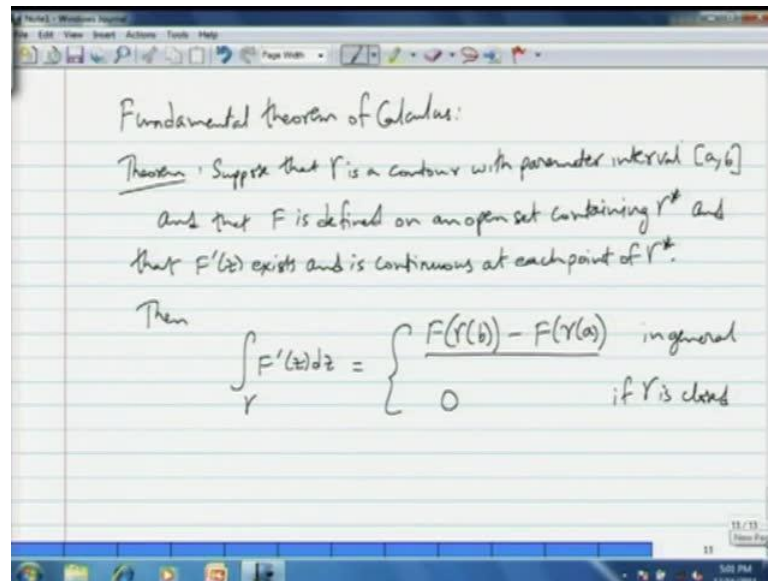 Note1 - Windows Journal
File Edit View Insert Actions Tools Help
Page Width
Fundamental theorem of Calculus:
Theorem: Suppose that γ is a contour with parameter interval [a,b]
and that F is defined on an open set containing γ* and
that F'(z) exists and is continuous at each point of γ*.
Then
∫_γ F'(z)dz = { F(γ(b)) - F(γ(a)) in general
0 if γ is closed
13 / 13
New Pa
13
5:01 PM